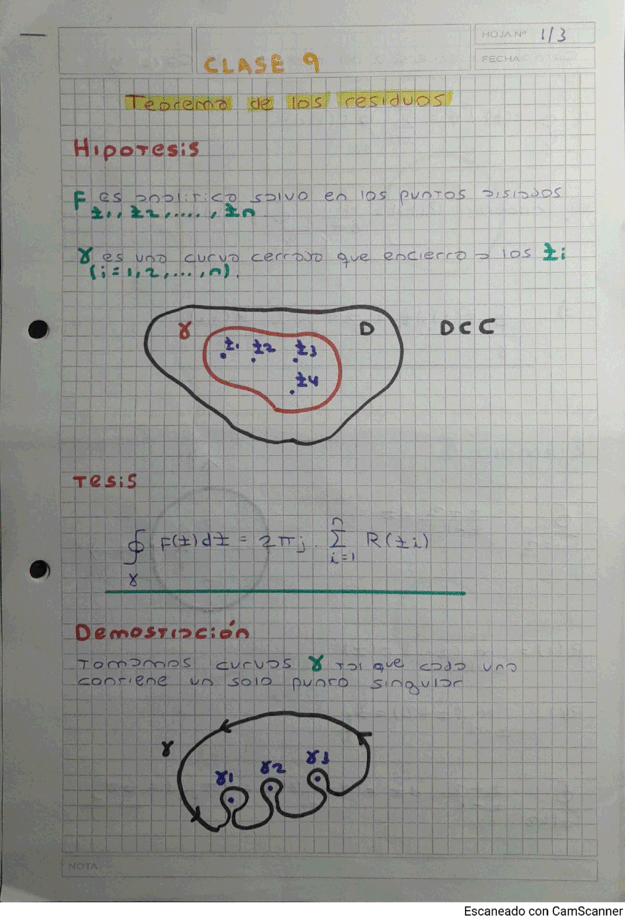 HOJA Nº 1/3
FECHA
CLASE 9
Teorema de los residuos
HIPOTESIS
F es analitica salvo en los puntos aislados
z1, z2, ...., zn
γ es una curva cerrada que encierra a los zi
(i=1,2,...,n).
γ D D⊂C
z1 z2 z3
z4
Tesis
∮γ F(z)dz = 2πj. Σ(i=1 → n) R(zi)
Demostración
Tomamos curvas γ tal que cada una
contiene un solo punto singular
γ γ1 γ2 γ3
NOTA
Escaneado con CamScanner